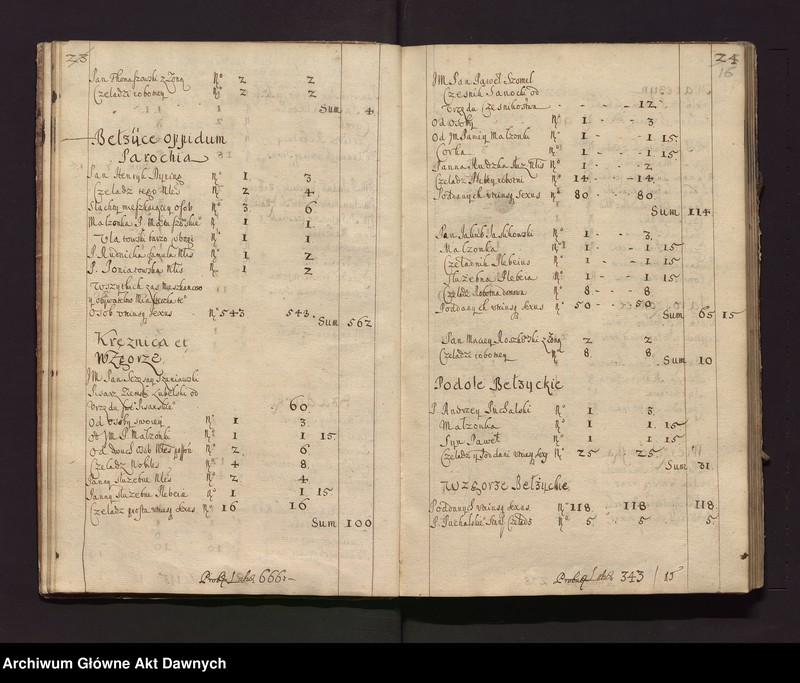 23
Pan Thomaszowski z Żoną No 2 2
Czeladzi robomey No 2 2
Sum 4
Bełżyce oppidum
Parochia
Pan Henryk Pyring No 1 3
Czeladz tego Nlis No 2 4
Slachty mięszkaiący osob No 3 6
Małzonka P. No 1 1
barzo ubogi No 1 1
P. Rudnicka famula Nlis No 1 2
P. Poniatowska Nlis No 1 2
Wszytkich zas Mięszkancow
y obywatelow Miasteczka te°
osob utriusq sexus No 543 543
Sum 562
Kręznica et
Wzgorze
JM Pan Szczęsny Szaniawski
Pisarz Ziemski Lubelski od
Vrzędu Pisarskie° 60
Od osoby swoiey No 1 3
Od JM P. Małzonki No 1 1 15
Od dwuch osob Nles No 2 6
Czeladz Nobles No 4 8
Panny służebne Nles No 2 4
Panny służebne Plebeia No 1 1 15
Czeladz prosta utriusq sexus No 16 16
Sum 100
Latus 666:-
24
16
JM Pan Paweł Szomel
Czesnik Sanocki od
Vrzędu Czesnikostwa - - - 12
Od osoby No 1 - 3
Od JM Paniey Małzonki No 1 - - 1 15
Corka No 1 - - 1 15
Panna Rudzka służ. Nlis No 1 - - 2
Czeladz Plebey robotni No 14 - - 14
Poddanych utriusq sexus No 80 - - 80
Sum 114
Pan Jakub Jaszkowski No 1 - 3
Małzonka No 1 - - 1 15
Czeladnik Plebeius No 1 - - 1 15
Służebna Plebeia No 1 - - 1 15
Czeladz Robotna domowa No 8 - - 8
Poddanych utriusq sexus No 50 - - 50
Sum 65 15
Pan Maciey Roszkowski z Żoną No 2 2
Czeladzi robomey No 8 8
Sum 10
Podole Bełżyckie
P. Andrzey Puchalski No 1 3
Małzonka No 1 1 15
Syn Paweł No 1 1 15
Czeladzi y Poddani utriusq sexy No 25 25
Sum 31
Wzgorze Bełżyckie
Poddanych utriusq sexus No 118 118 118
P. Puchalskie° Czeladz No 5 5 5
Latus 343 / 15
Archiwum Główne Akt Dawnych